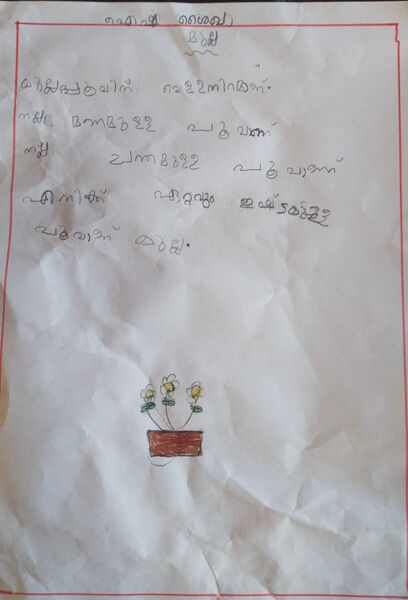 ഐഷ ശൈഖ
മുല്ല
മുല്ലപ്പൂവിന് വെള്ളനിറമാണ്.
നല്ല മണമുള്ള പൂവാണ്
നല്ല ചന്തമുള്ള പൂവാണ്
എനിക്ക് ഏറ്റവും ഇഷ്ടമുള്ള
പൂവാണ് മുല്ല.